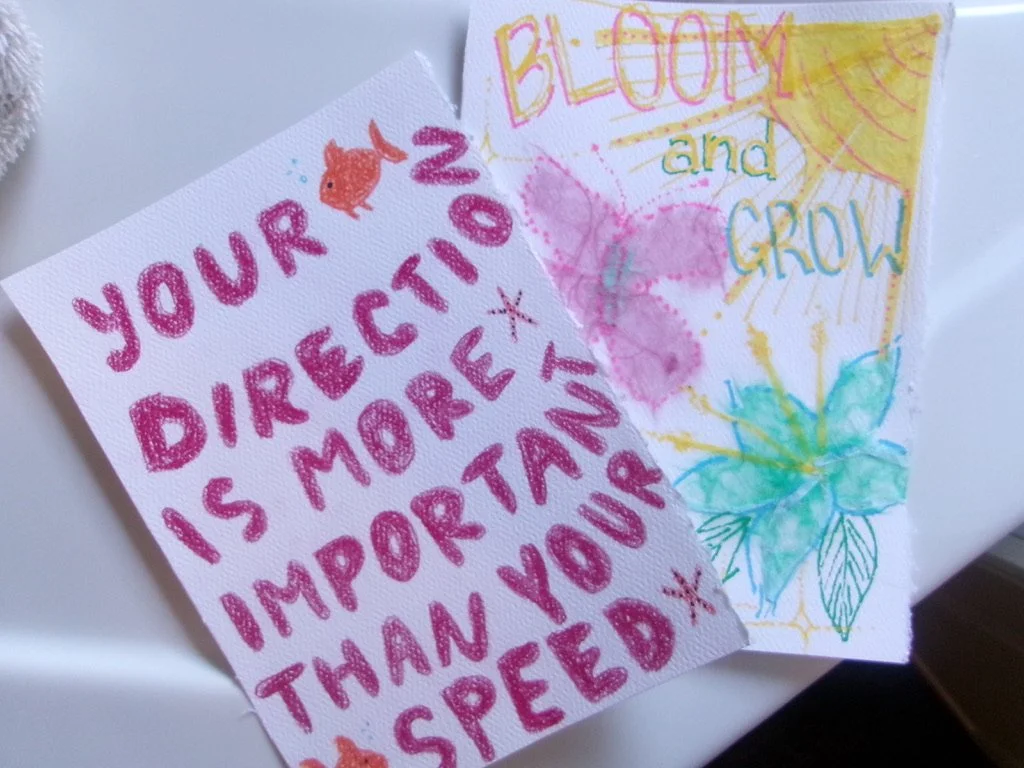 YOUR
DIRECTION
IS MORE
IMPORTANT
THAN YOUR
SPEED
BLOOM
and
GROW